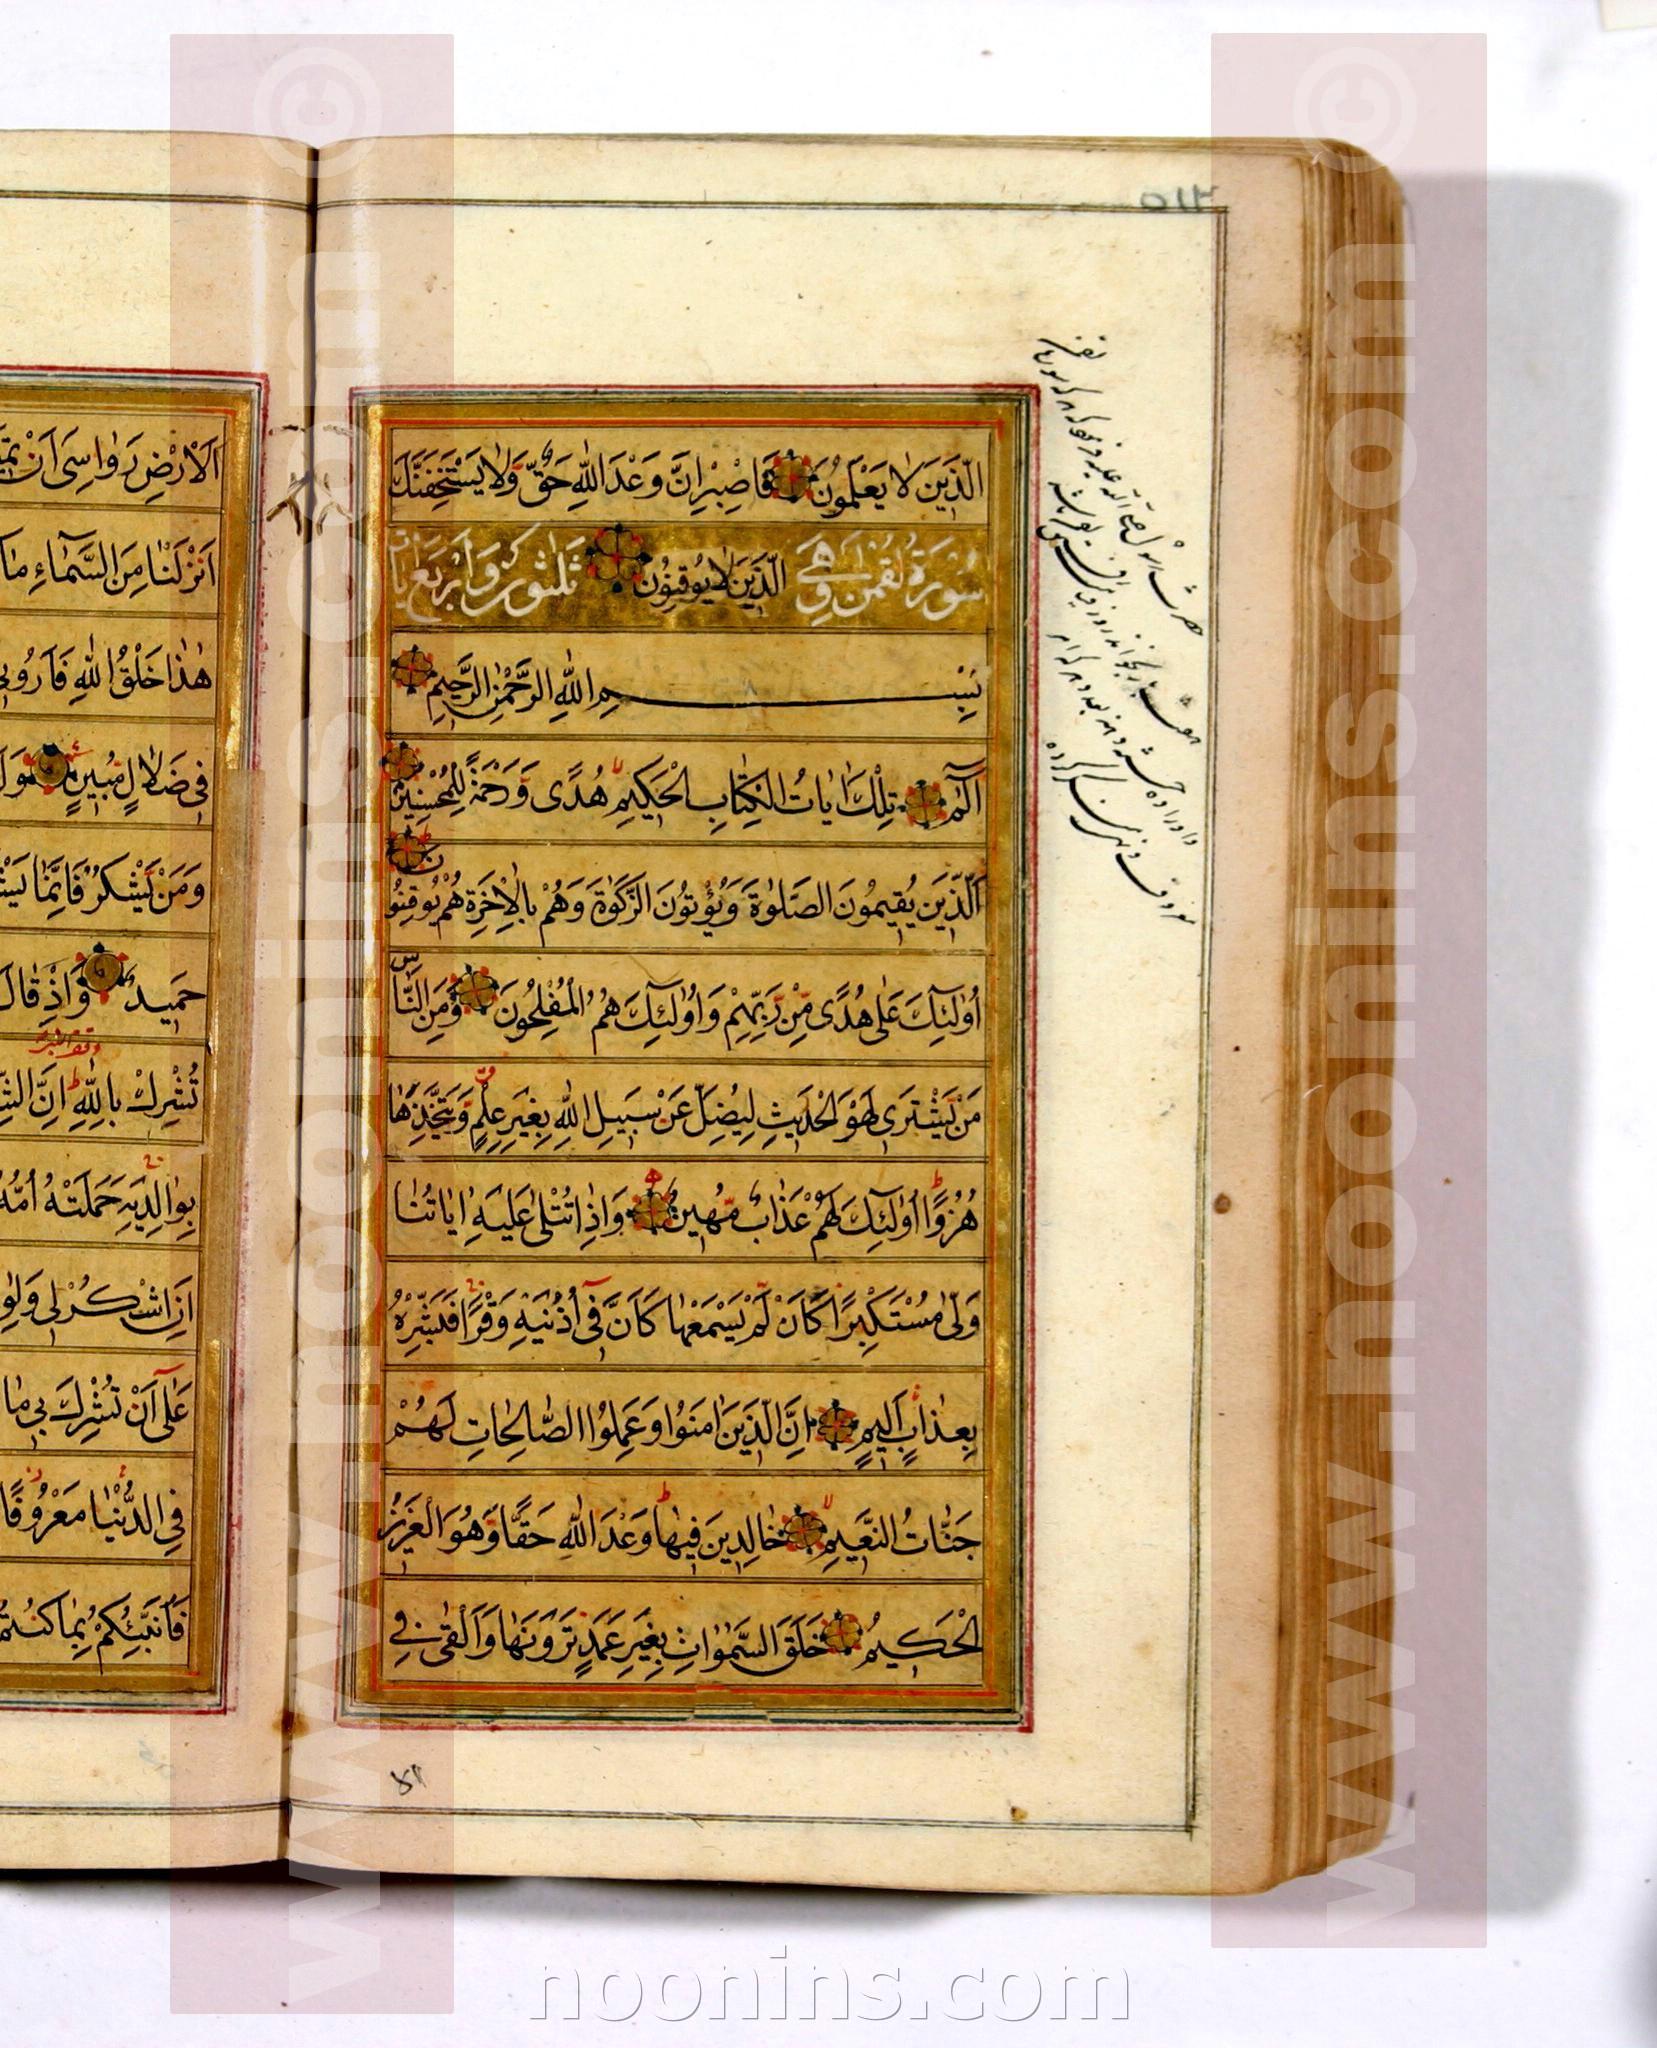 ٥١٣
الَّذِينَ لَا يَعْلَمُونَ فَاصْبِرْ إِنَّ وَعْدَ اللّٰهِ حَقٌّ وَلَا يَسْتَخِفَّنَّكَ
سُورَةُ لُقْمٰنَ وَهِيَ الَّذِينَ لَا يُوقِنُونَ ثَلٰثُونَ وَأَرْبَعُ آيَاتٍ
بِسْمِ اللّٰهِ الرَّحْمٰنِ الرَّحِيمِ
الٓمٓ تِلْكَ اٰيَاتُ الْكِتَابِ الْحَكِيمِ هُدًى وَرَحْمَةً لِلْمُحْسِنِينَ
الَّذِينَ يُقِيمُونَ الصَّلٰوةَ وَيُؤْتُونَ الزَّكٰوةَ وَهُمْ بِالْاٰخِرَةِ هُمْ يُوقِنُونَ
أُولٰئِكَ عَلٰى هُدًى مِنْ رَبِّهِمْ وَأُولٰئِكَ هُمُ الْمُفْلِحُونَ وَمِنَ النَّاسِ
مَنْ يَشْتَرِي لَهْوَ الْحَدِيثِ لِيُضِلَّ عَنْ سَبِيلِ اللّٰهِ بِغَيْرِ عِلْمٍ وَيَتَّخِذَهَا
هُزُوًا أُولٰئِكَ لَهُمْ عَذَابٌ مُهِينٌ وَإِذَا تُتْلٰى عَلَيْهِ اٰيَاتُنَا
وَلّٰى مُسْتَكْبِرًا كَأَنْ لَمْ يَسْمَعْهَا كَأَنَّ فِي أُذُنَيْهِ وَقْرًا فَبَشِّرْهُ
بِعَذَابٍ أَلِيمٍ إِنَّ الَّذِينَ اٰمَنُوا وَعَمِلُوا الصَّالِحَاتِ لَهُمْ
جَنَّاتُ النَّعِيمِ خَالِدِينَ فِيهَا وَعْدَ اللّٰهِ حَقًّا وَهُوَ الْعَزِيزُ
الْحَكِيمُ خَلَقَ السَّمٰوَاتِ بِغَيْرِ عَمَدٍ تَرَوْنَهَا وَأَلْقٰى فِي
الْأَرْضِ رَوَاسِيَ أَنْ تَمِيدَ
أَنْزَلْنَا مِنَ السَّمَاءِ مَا
هٰذَا خَلْقُ اللّٰهِ فَأَرُونِي
فِي ضَلَالٍ مُبِينٍ وَلَ
وَمَنْ يَشْكُرْ فَإِنَّمَا يَشْ
حَمِيدٌ وَإِذْ قَالَ
تُشْرِكْ بِاللّٰهِ إِنَّ الشِّ
بِوَالِدَيْهِ حَمَلَتْهُ أُمُّهُ
أَنِ اشْكُرْ لِي وَلِوَ
عَلٰى أَنْ تُشْرِكَ بِي مَا
فِي الدُّنْيَا مَعْرُوفًا
فَأُنَبِّئُكُمْ بِمَا كُنْتُمْ
www.noonins.com ©
www.noonins.com ©
noonins.com